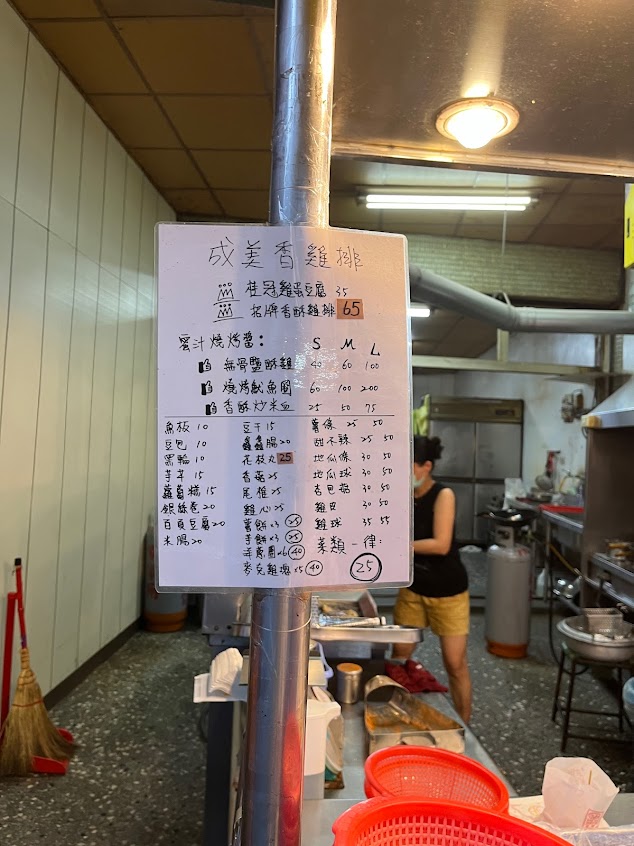 成美香雞排
桂冠雞蛋豆腐 35
招牌香酥雞排 65
蜜汁燒烤醬: S M L
無骨鹽酥雞 40 60 100
燒烤鹹魚圈 60 100 200
香酥炒米血 25 50 75
魚板 10
豆包 10
黑輪 10
芋羊 15
蘿蔔糕 15
銀絲卷 20
百頁豆腐 20
米腸 20
豆干 15
鑫鑫腸 20
花枝丸 25
香菇 25
尾椎 25
雞心 25
薯餅x3 25
芋餅x3 25
洋蔥圈x6 40
麥克雞塊x5 40
薯條 25 50
甜不辣 25 50
地瓜條 30 50
地瓜球 30 50
杏包菇 30 50
雞皮 30 50
雞球 35 55
菜類一律:
25